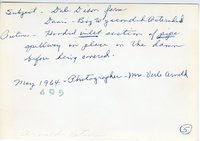 Subject - Deb Dixon farm
Dam - Big Wyacondah Watershed
Picture - Hooded inlet section of pipe
spillway in place in the dam
before being covered.
May 1964 - Photographer - Mrs. Verle Arnold
695
5